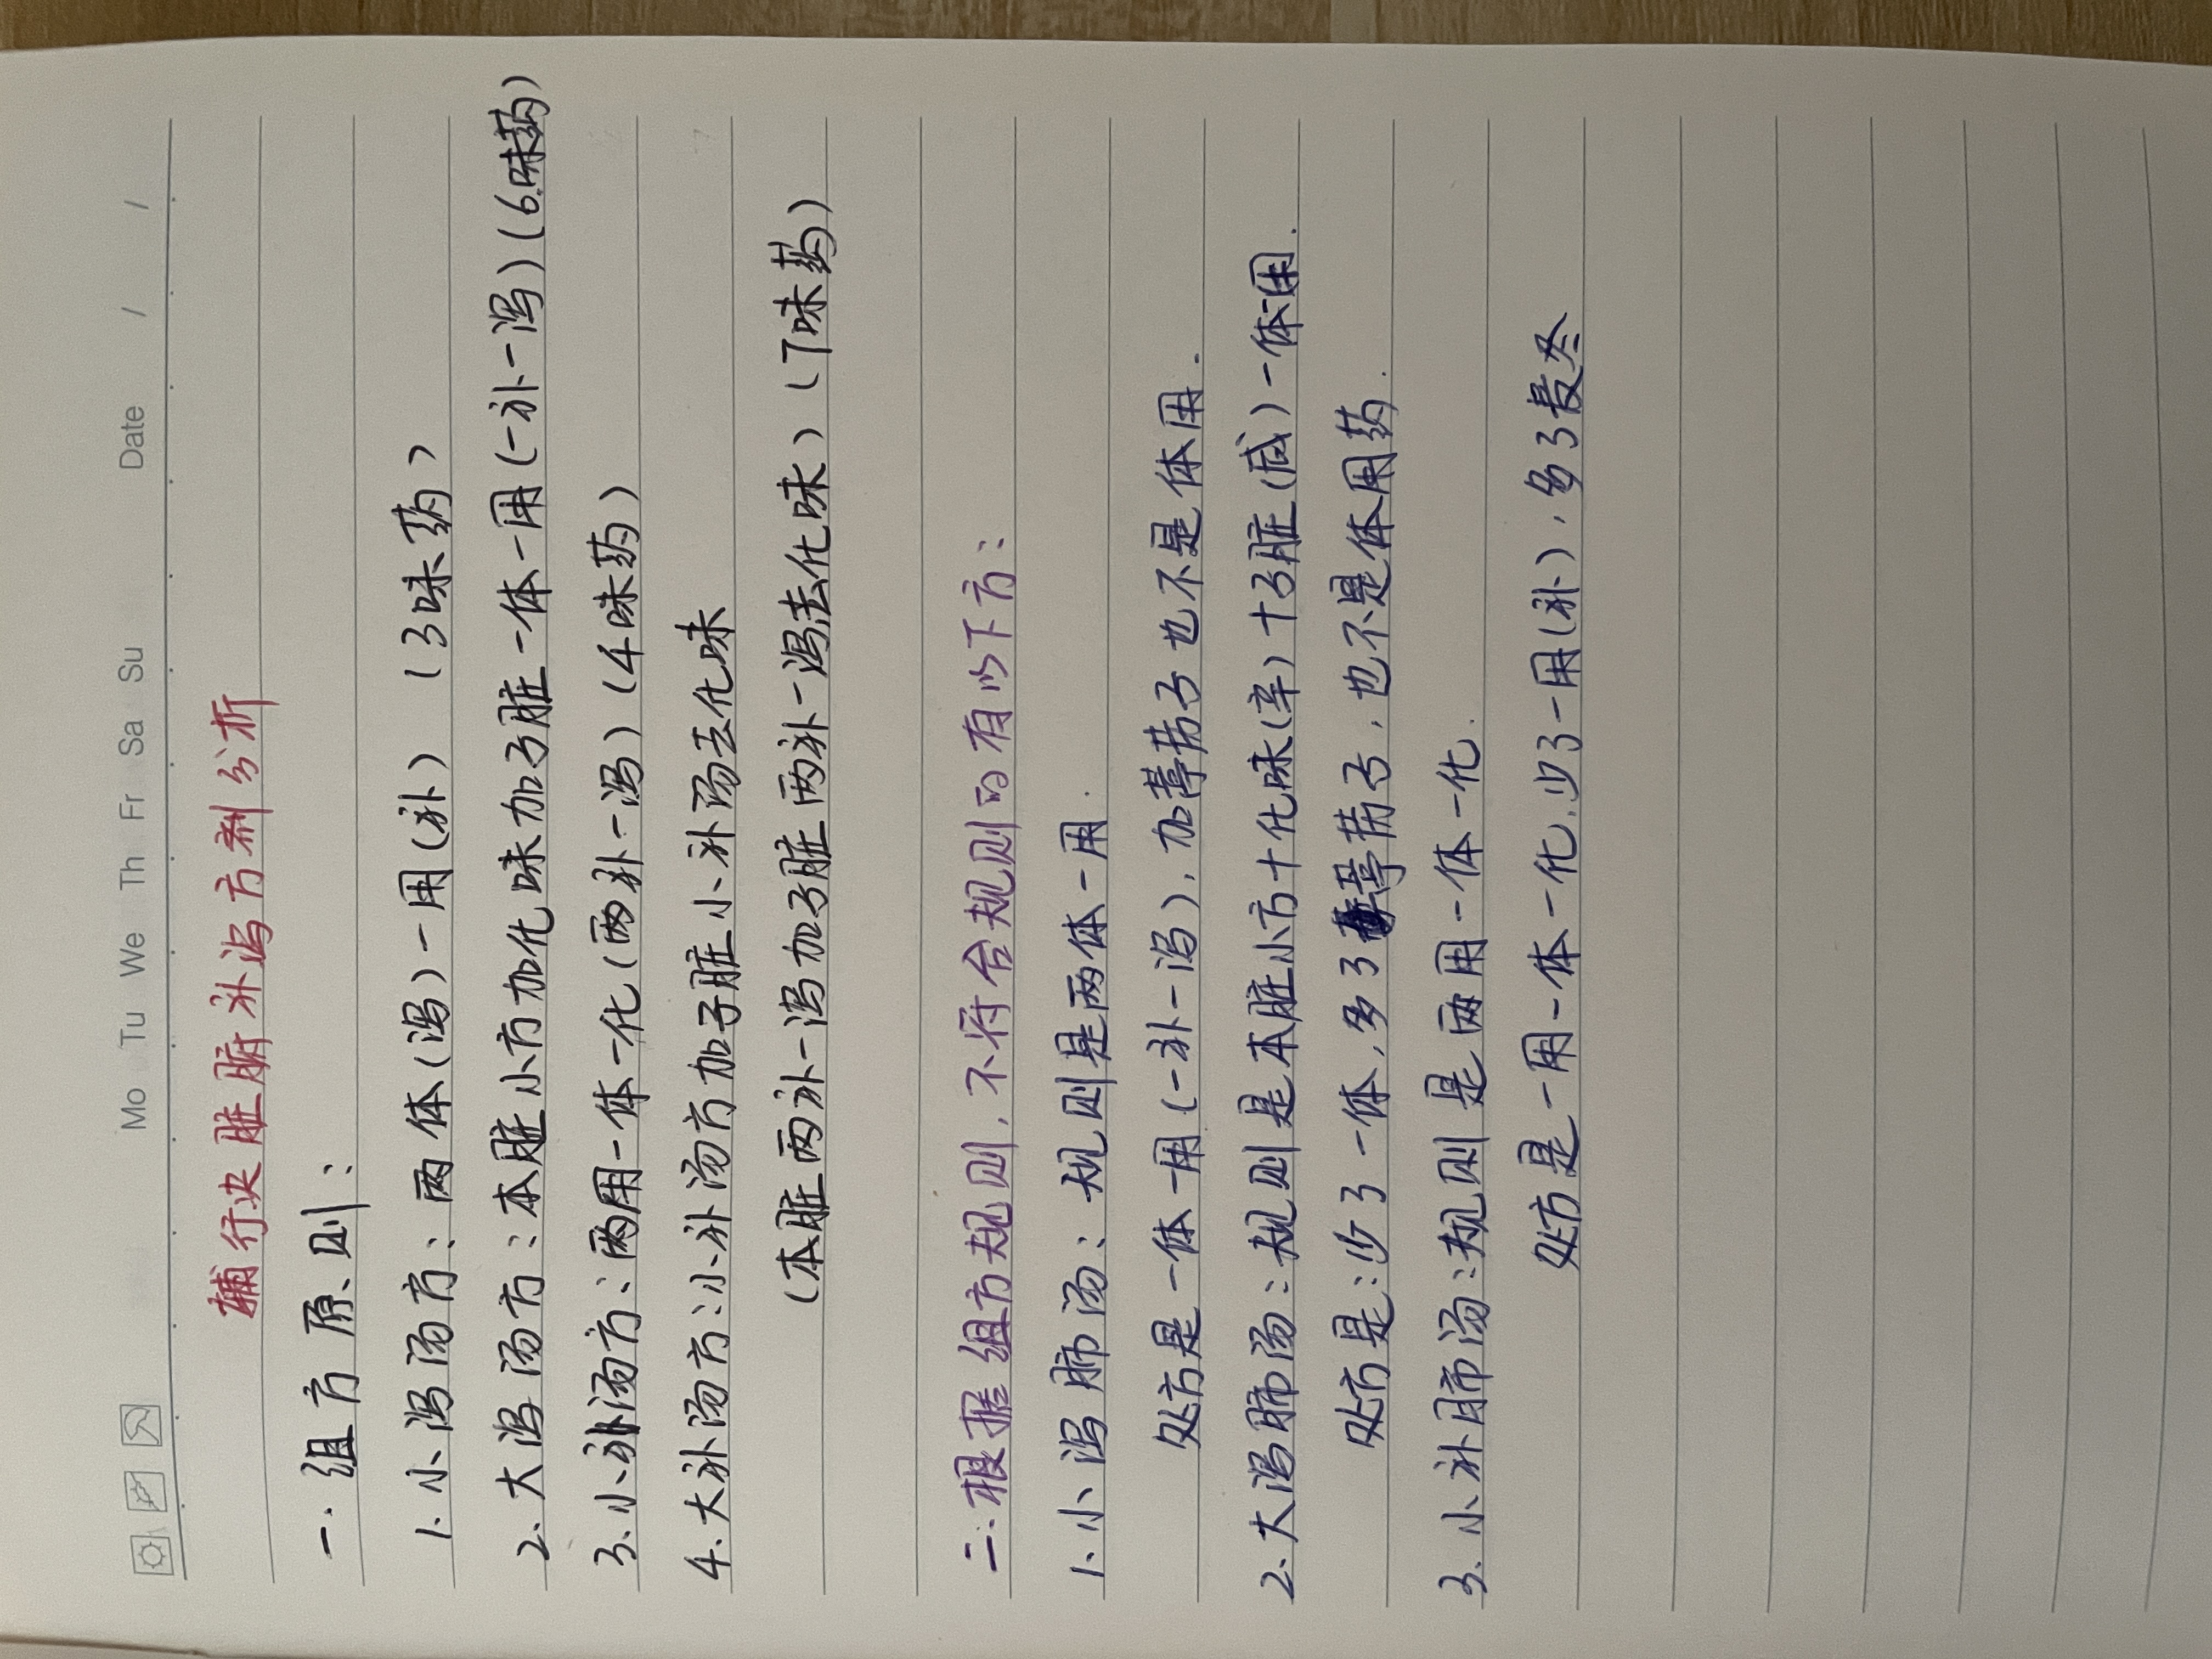 Mo Tu We Th Fr Sa Su Date / /
辅行决脏腑补泻方剂分析
一. 组方原则:
1. 小泻汤方: 两体(泻)一用(补) (3味药)
2. 大泻汤方: 本脏小方加化味加子脏一体一用(一补一泻)(6味药)
3. 小补汤方: 两用一体一化(两补一泻)(4味药)
4. 大补汤方: 小补汤方加子脏小补汤去化味
(本脏两补一泻加子脏两补一泻去化味)(7味药)
二. 根据组方规则, 不符合规则的有以下方:
1. 小泻肺汤: 规则是两体一用.
处方是一体一用(一补一泻), 加葶苈子也不是体用.
2. 大泻肺汤: 规则是本脏小方十化味(辛)十子脏(咸)一体一用.
处方是: 少了一体, 多了葶苈子, 也不是体用药.
3. 小补肺汤: 规则是两用一体一化.
处方是一用一体一化, 少了一用(补), 多了麦冬